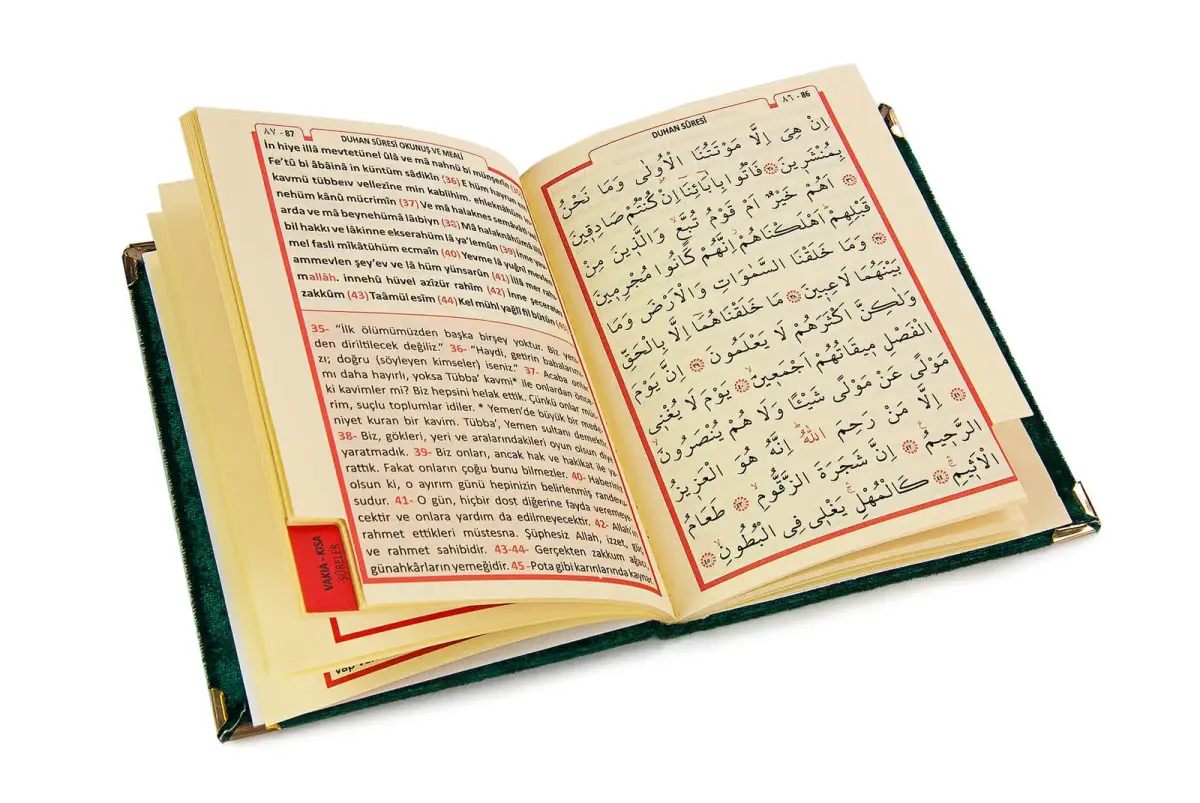 ٨٦ - 86
DUHAN SÛRESİ
اِنْ هِىَ اِلَّا مَوْتَتُنَا الْاُولٰى وَمَا نَحْنُ
بِمُنْشَرٖينَ ﴿٣٥﴾ فَاْتُوا بِاٰبَٓائِنَٓا اِنْ كُنْتُمْ صَادِقٖينَ
﴿٣٦﴾ اَهُمْ خَيْرٌ اَمْ قَوْمُ تُبَّعٍ وَالَّذٖينَ مِنْ
قَبْلِهِمْ اَهْلَكْنَاهُمْ اِنَّهُمْ كَانُوا مُجْرِمٖينَ
﴿٣٧﴾ وَمَا خَلَقْنَا السَّمٰوَاتِ وَالْاَرْضَ وَمَا
بَيْنَهُمَا لَاعِبٖينَ ﴿٣٨﴾ مَا خَلَقْنَاهُمَٓا اِلَّا بِالْحَقِّ
وَلٰكِنَّ اَكْثَرَهُمْ لَا يَعْلَمُونَ ﴿٣٩﴾ اِنَّ يَوْمَ
الْفَصْلِ مٖيقَاتُهُمْ اَجْمَعٖينَ ﴿٤٠﴾ يَوْمَ لَا يُغْنٖى
مَوْلًى عَنْ مَوْلًى شَيْـًٔا وَلَا هُمْ يُنْصَرُونَ
﴿٤١﴾ اِلَّا مَنْ رَحِمَ اللّٰهُ اِنَّهُ هُوَ الْعَزٖيزُ
الرَّحٖيمُ ﴿٤٢﴾ اِنَّ شَجَرَةَ الزَّقُّومِ ﴿٤٣﴾ طَعَامُ
الْاَثٖيمِ ﴿٤٤﴾ كَالْمُهْلِ يَغْلٖى فِى الْبُطُونِ ﴿٤٥﴾
٨٧ - 87
DUHAN SÛRESİ OKUNUŞ VE MEALİ
İn hiye illâ mevtetünel ûlâ ve mâ nahnü bi münşerîn
Fe'tû bi âbâinâ in küntüm sâdikîn (36) E hüm hayrun em
kavmü tübbeıv vellezîne min kablihim. ehleknâhüm
nehüm kânû mücrimîn (37) Ve mâ halaknes semâvâti vel
arda ve mâ beynehümâ lâıbiyn (38) Mâ halaknâhümâ illâ
bil hakkı ve lâkinne ekserahüm lâ ya'lemûn (39) İnne yev
mel fasli mîkâtühüm ecmaîn (40) Yevme lâ yuğnî mevlen
ammevlen şey'ev ve lâ hüm yünsarûn (41) İllâ mer rahı
mallâh. innehû hüvel azîzür rahîm (42) İnne şeceratez
zakkûm (43) Taâmül esîm (44) Kel mühl yağlî fil bütûn (45)
35- "İlk ölümümüzden başka birşey yoktur. Biz yeni
den diriltilecek değiliz." 36- "Haydi, getirin babalarımı
zı; doğru (söyleyen kimseler) iseniz." 37- Acaba onlar
mı daha hayırlı, yoksa Tübba' kavmi* ile onlardan önce
ki kavimler mi? Biz hepsini helak ettik. Çünkü onlar müc
rim, suçlu toplumlar idiler. * Yemen'de büyük bir mede
niyet kuran bir kavim. Tübba', Yemen sultanı demektir.
38- Biz, gökleri, yeri ve aralarındakileri oyun olsun diye
yaratmadık. 39- Biz onları, ancak hak ve hakikat ile ya
rattık. Fakat onların çoğu bunu bilmezler. 40- Haberiniz
olsun ki, o ayırım günü hepinizin belirlenmiş randevu
sudur. 41- O gün, hiçbir dost diğerine fayda veremeye
cektir ve onlara yardım da edilmeyecektir. 42- Allah'ın
rahmet ettikleri müstesna. Şüphesiz Allah, izzet, güç
ve rahmet sahibidir. 43-44- Gerçekten zakkum ağacı,
günahkârların yemeğidir. 45- Pota gibi karınlarında kaynar.
VAKIA - KISA
SÛRELER